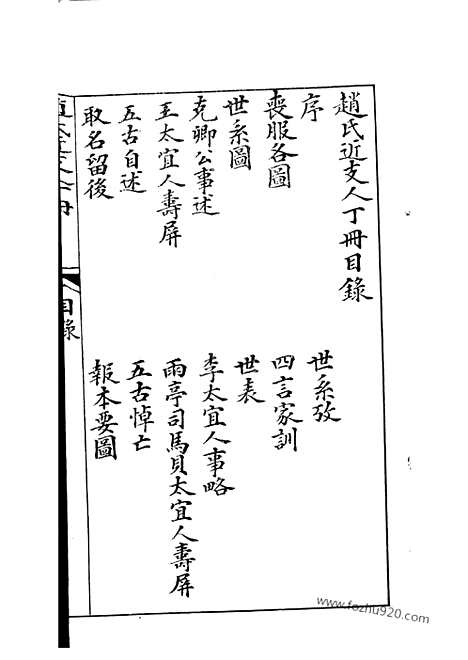 趙氏近支人丁冊目錄
序
世系攷
喪服各圖
四言家訓
世系圖
世表
克卿公事述
李太宜人事略
王太宜人壽屏
雨亭司馬貝太宜人壽屏
五古自述
五古悼亡
取名留後
報本要圖
目錄
www.fozhu920.com